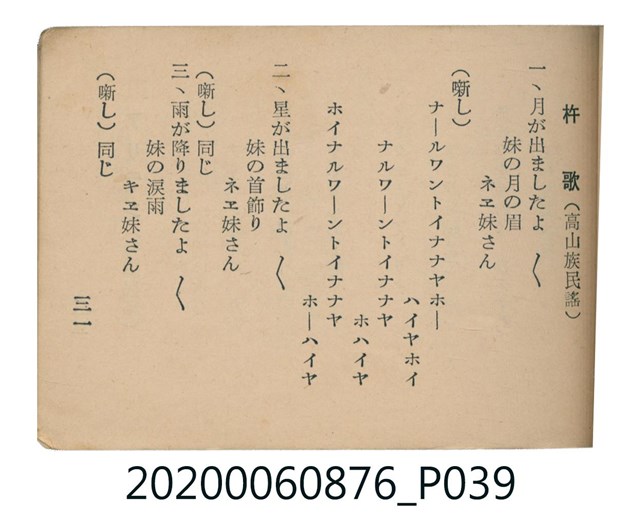 杵歌（高山族民謠）
一、月が出ましたよ 〱
妹の月の眉
ネヱ妹さん
（噺し）
ナールワントイナナヤホー
ハイヤホイ
ナルワーントイナナヤ
ホハイヤ
ホイナルワーントイナナヤ
ホーハイヤ
二、星が出ましたよ 〱
妹の首飾り
ネヱ妹さん
（噺し）同じ
三、雨が降りましたよ 〱
妹の涙雨
キヱ妹さん
（噺し）同じ
三一
20200060876_P039